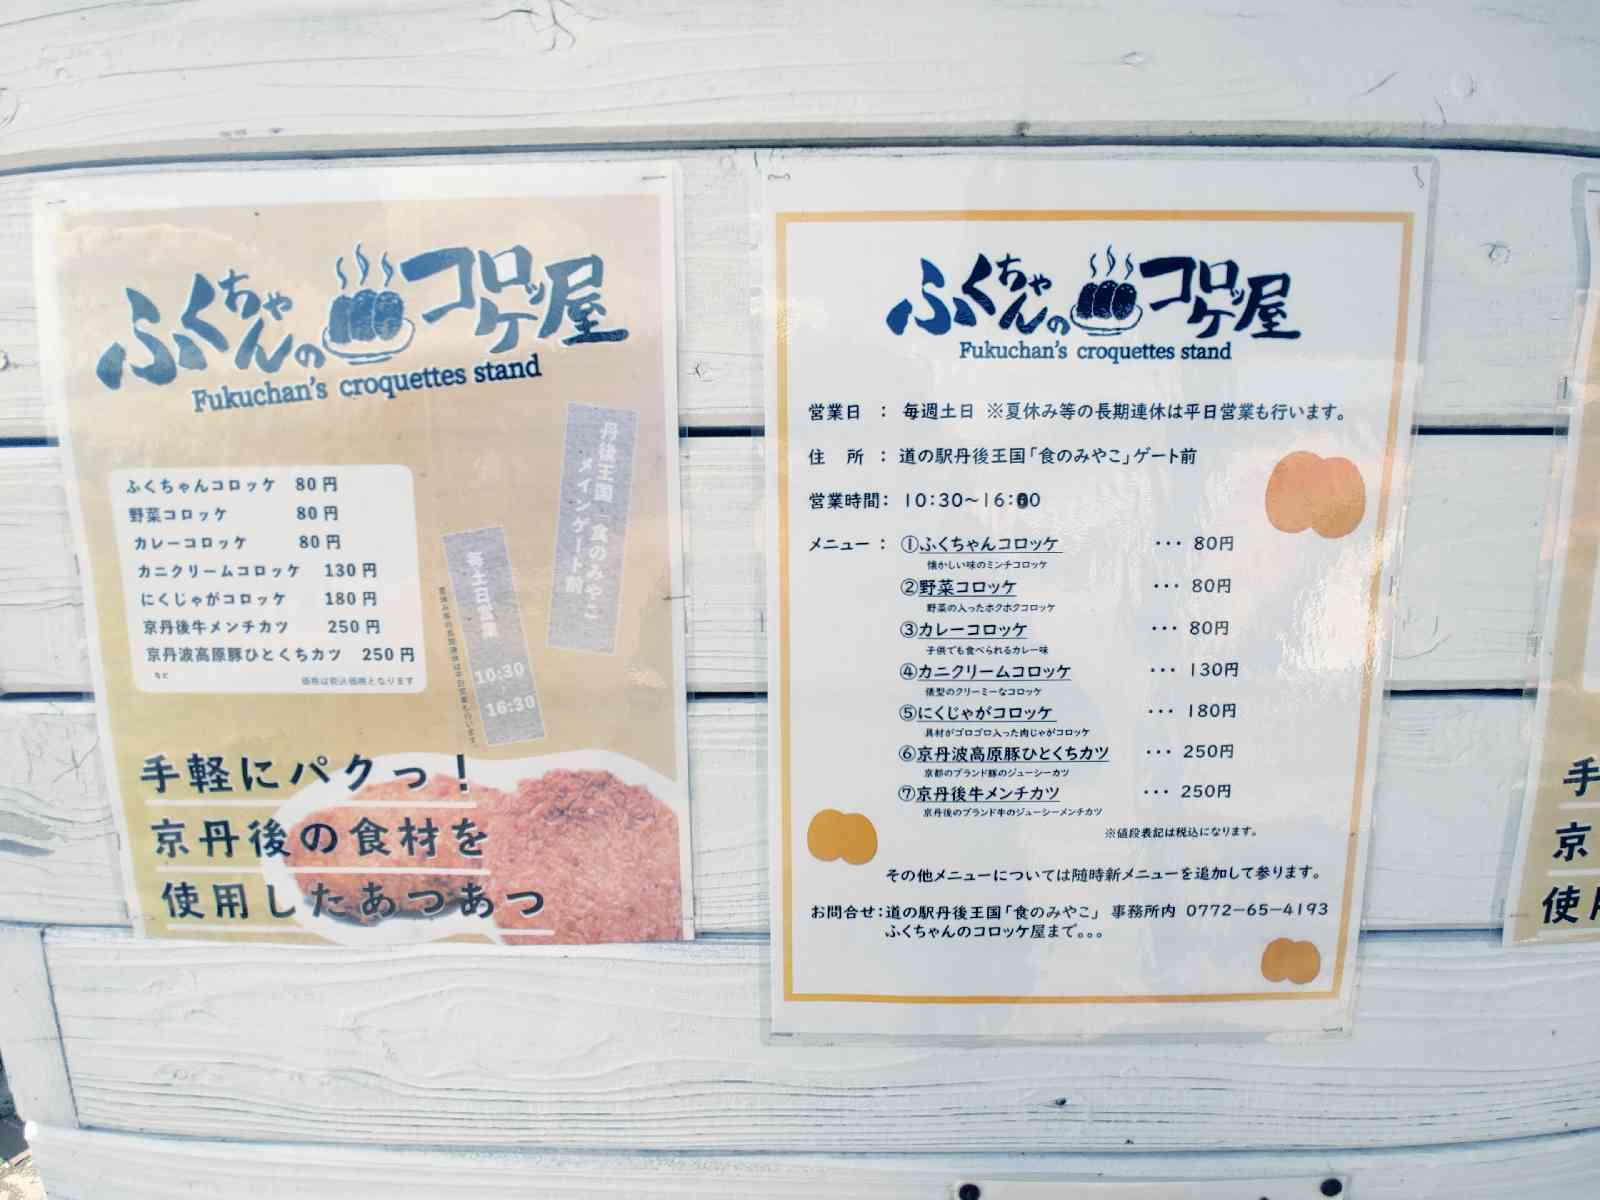 ふくちゃんのコロッケ屋
Fukuchan's croquettes stand
丹後王国「食のみやこ」
メインゲート前
毎土日営業
10:30
16:30
夏休み等の長期連休は平日営業も行います。
ふくちゃんコロッケ 80円
野菜コロッケ 80円
カレーコロッケ 80円
カニクリームコロッケ 130円
にくじゃがコロッケ 180円
京丹後牛メンチカツ 250円
京丹波高原豚ひとくちカツ 250円
など
価格は税込価格となります
手軽にパクっ!
京丹後の食材を
使用したあつあつ
ふくちゃんのコロッケ屋
Fukuchan's croquettes stand
営業日 : 毎週土日 ※夏休み等の長期連休は平日営業も行います。
住 所 : 道の駅丹後王国「食のみやこ」ゲート前
営業時間: 10:30~16:00
メニュー : ①ふくちゃんコロッケ ··· 80円
懐かしい味のミンチコロッケ
②野菜コロッケ ··· 80円
野菜の入ったホクホクコロッケ
③カレーコロッケ ··· 80円
子供でも食べられるカレー味
④カニクリームコロッケ ··· 130円
俵型のクリーミーなコロッケ
⑤にくじゃがコロッケ ··· 180円
具材がゴロゴロ入った肉じゃがコロッケ
⑥京丹波高原豚ひとくちカツ ··· 250円
京都のブランド豚のジューシーカツ
⑦京丹後牛メンチカツ ··· 250円
京丹後のブランド牛のジューシーメンチカツ
※値段表記は税込になります。
その他メニューについては随時新メニューを追加して参ります。
お問合せ:道の駅丹後王国「食のみやこ」 事務所内 0772-65-4193
ふくちゃんのコロッケ屋まで。。。
手
京
使用